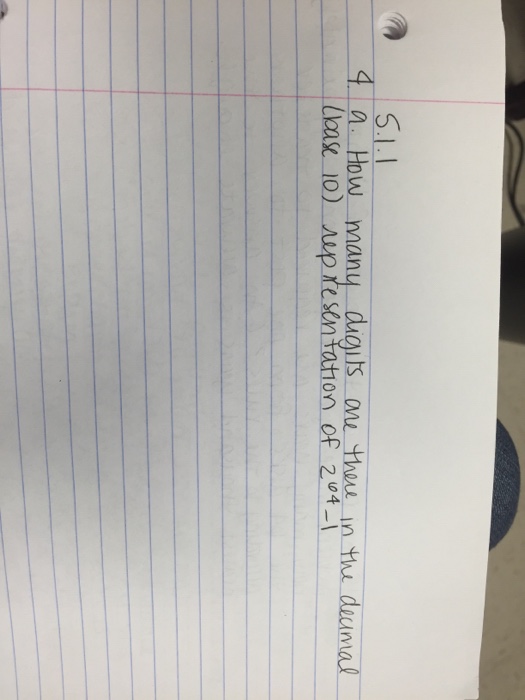 5.1.1
4. a. How many digits are there in the decimal
(base 10) representation of 2⁶⁴-1